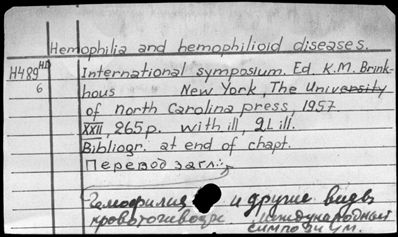 Hemophilia and hemophilioid diseases.
H489 HD International symposium. Ed. K.M. Brink-
6 hous New York, The university
of north Carolina press, 1957.
XXII, 265 p. with ill, 2 L ill.
Bibliogr. at end of chapt.
Перевод загл.:
Гемофилия и другие виды
международный
симпозиум.